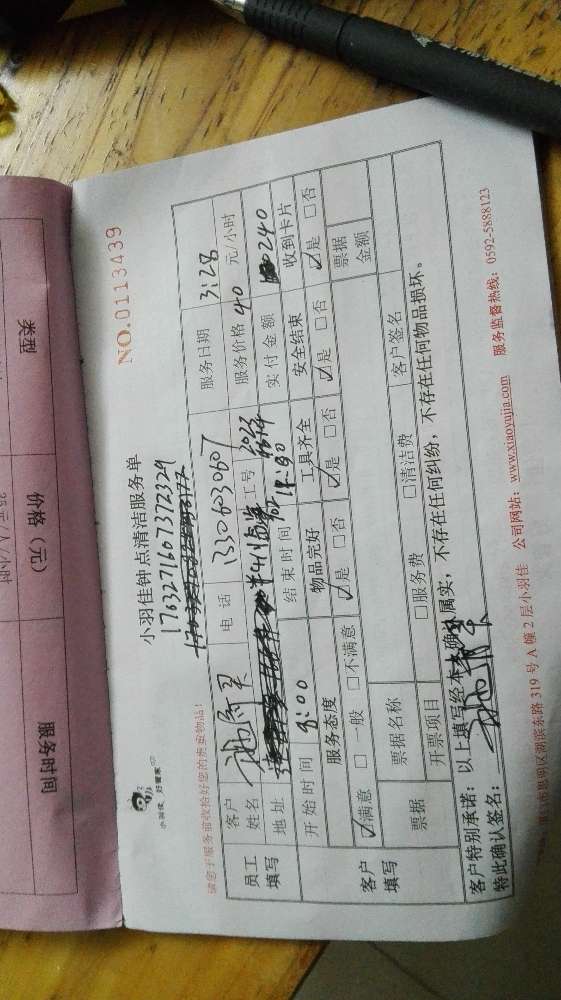 NO.0113439
小羽佳钟点清洁服务单
1703271607372329
小羽佳 好管家
请您于服务前收拾好您的贵重物品!
员工填写 客户姓名 电话 13306030607 服务日期 3:28
地址 工号 服务价格 40 元/小时
开始时间 8:00 结束时间 实付金额 240
客户填写 服务态度 物品完好 工具齐全 安全结束 收到卡片
☑满意 □一般 □不满意 ☑是 □否 ☑是 □否 ☑是 □否 ☑是 □否
票据 票据名称 □服务费 □清洁费 客户签名 票据金额
开票项目
客户特别承诺:以上填写经本人确认属实,不存在任何纠纷,不存在任何物品损坏。
特此确认签名:
湖滨东路 319 号 A 幢 2 层小羽佳 公司网站:www.xiaoyujia.com 服务监督热线:0592-5888123
类型 价格(元) 服务时间